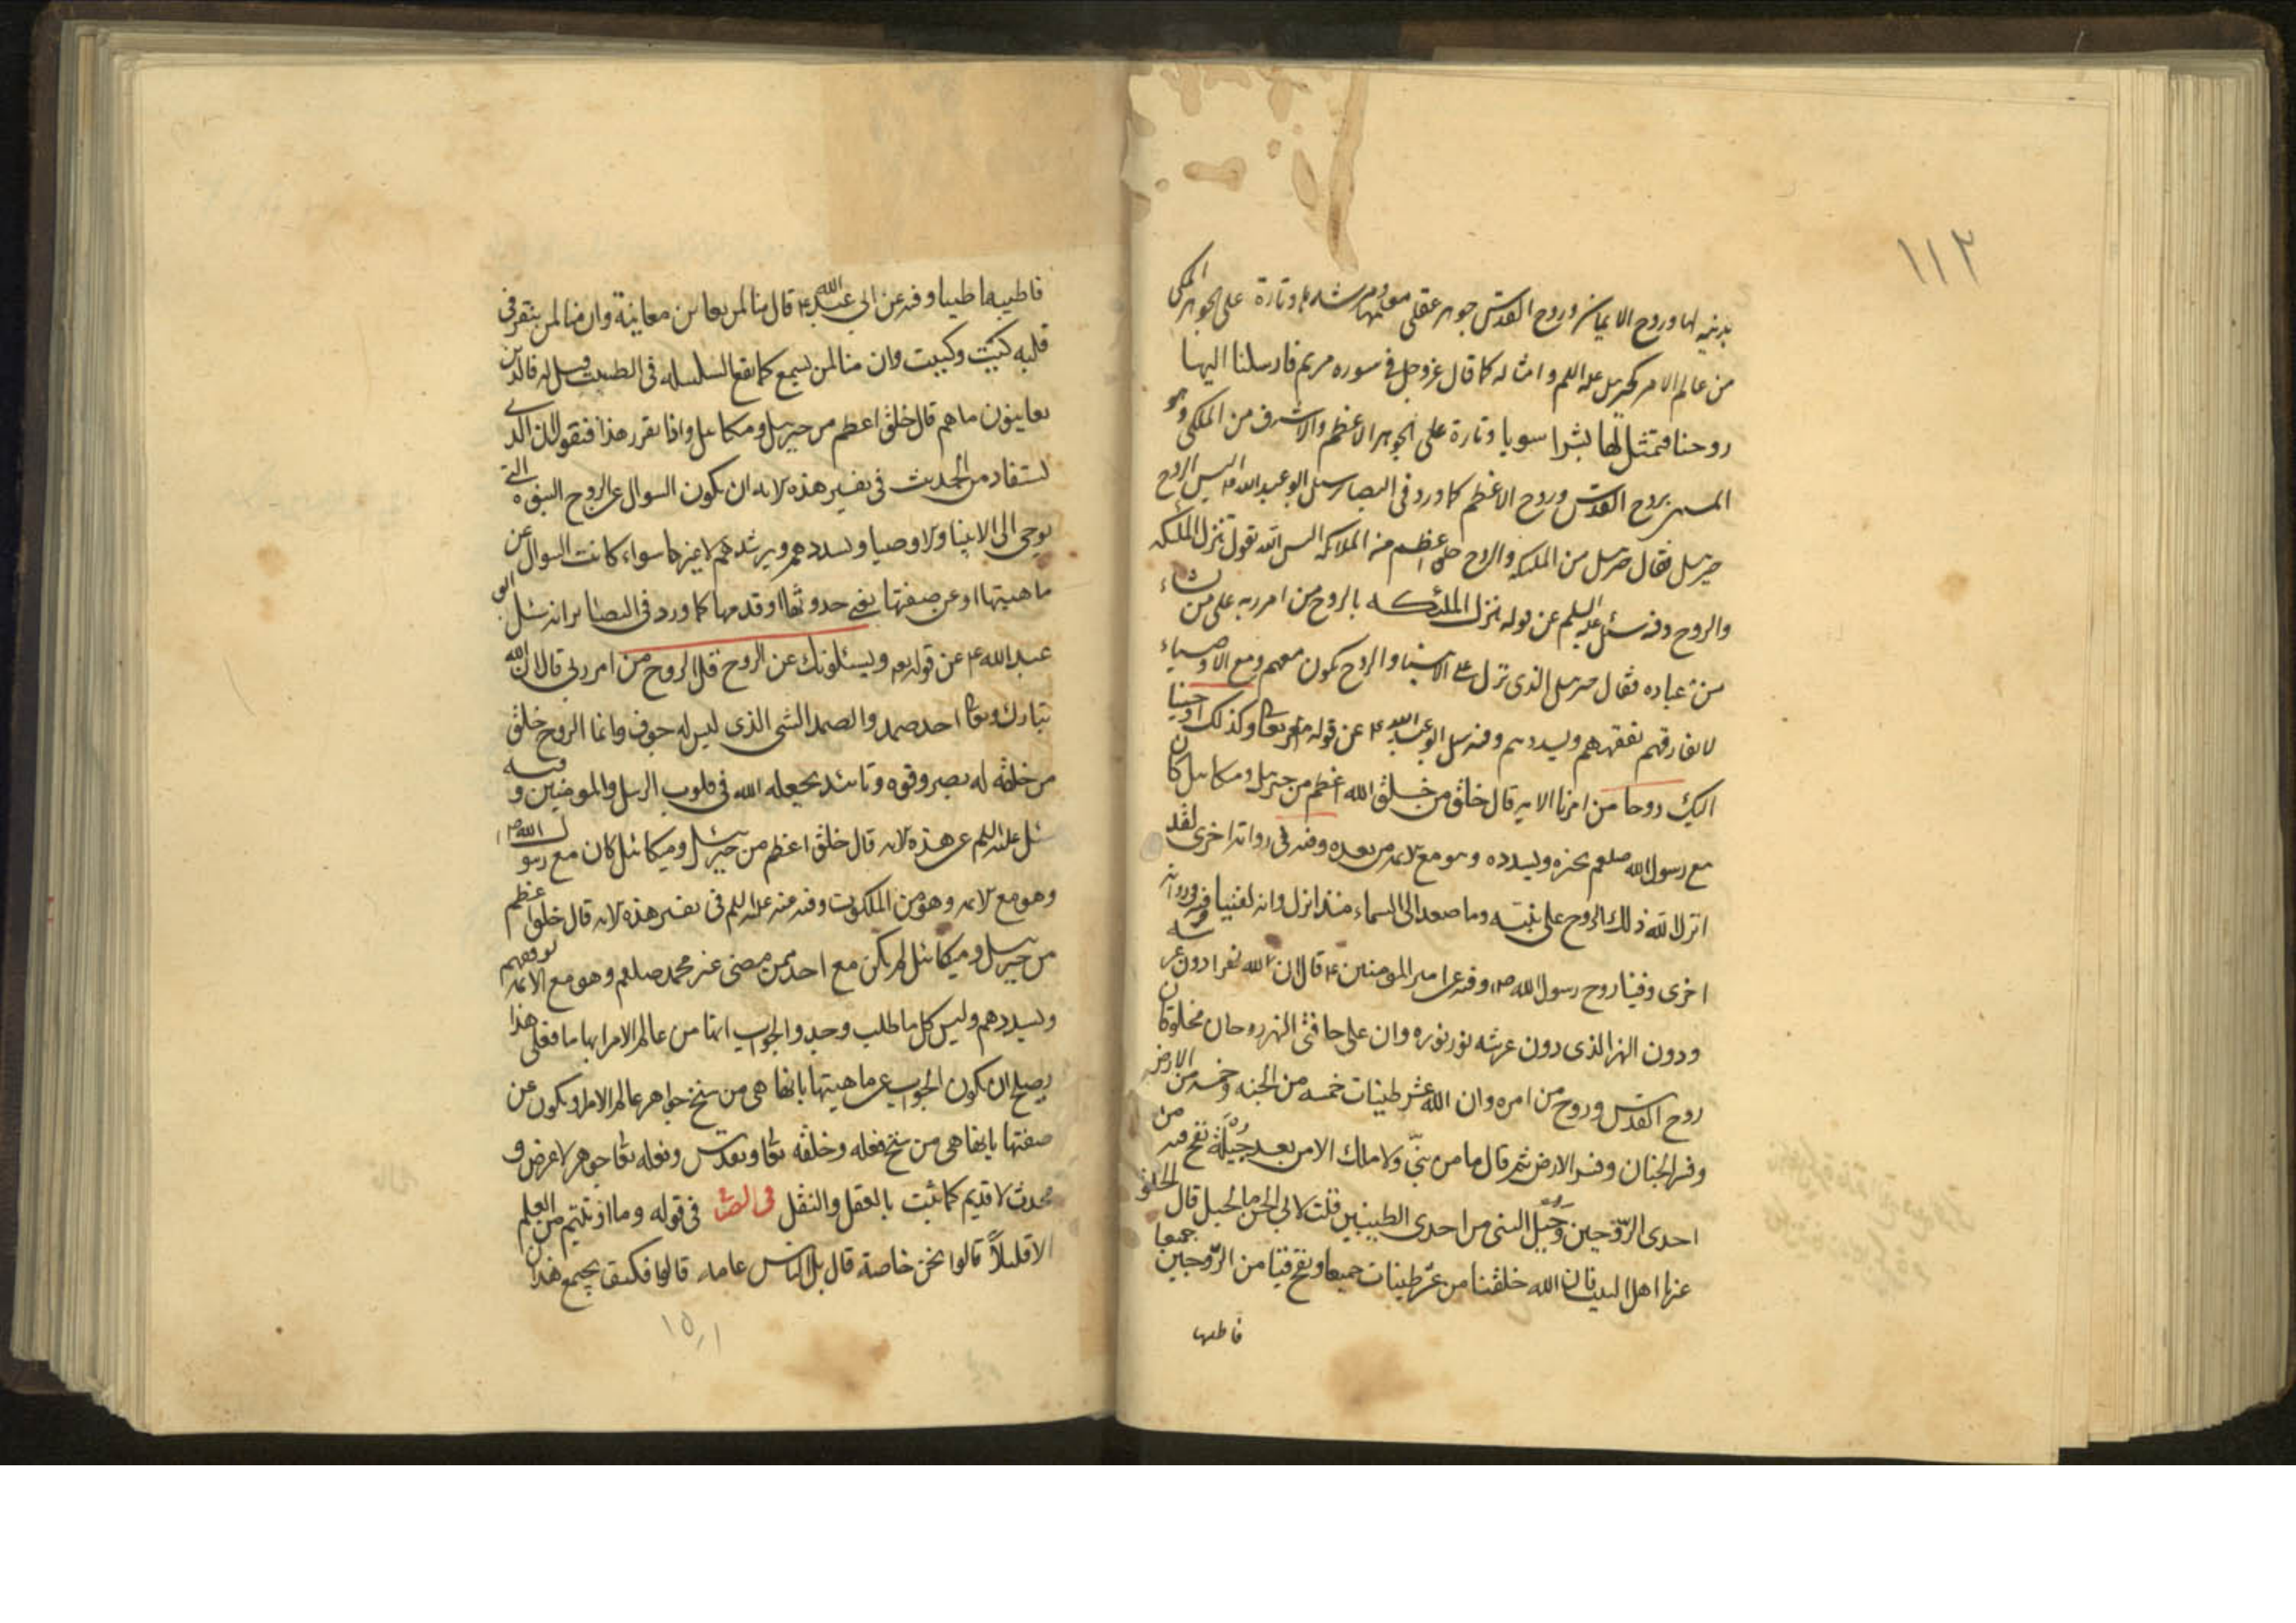 ١١٢
بدنيه لها وروح الايمان وروح القدس جوهر عقلى وتارة على الجوهر الملكى
من عالم الامر كجبرئيل عليه السلم وامثاله كما قال عز وجل فى سوره مريم فارسلنا اليها
روحنا فتمثل لها بشرا سويا وتارة على الجوهر الاعظم والاشرف من الملكى وهو
المسمى بروح القدس وروح الاعظم كما ورد فى البصاير سئل ابو عبد الله ع اليس الروح
جبرئيل فقال جبرئيل من الملئكه والروح خلق اعظم من الملائكه اليس الله تقول تنزل الملئكه
والروح وفيه سئل عليه السلم عن قوله ينزل الملئكه بالروح من امر ربه على من يشاء
من عباده فقال جبرئيل الذى نزل على الانبيا والروح يكون معهم ومع الاوصياء
لا يفارقهم تفقههم ويسددهم وفيه سئل ابو عبد الله ع عن قوله تعالى وكذلك اوحينا
اليك روحا من امرنا الايه قال خلق من خلق الله اعظم من جبرئيل وميكائيل كان
مع رسول الله صلعم يخبره ويسدده وهو مع الائمه من بعده وفيه فى روايه اخرى لقد
انزل الله ذلك الروح على نبيه وما صعد الى السماء منذ انزل وانه لفينا وفى روايه
اخرى وفينا روح رسول الله ص وفيه عن امير المومنين ع قال ان لله نهرا دون عرشه
ودون النهر الذى دون عرشه نور نوره وان على حافتى النهر روحان مخلوقان
روح القدس وروح من امره وان الله عشر طينات خمسه من الجنه وخمسه من الارض
وفسر الجنان وفسر الارض ثم قال ما من نبىّ ولا ملك الا من بعد جبله نفخ فيه من
احدى الروحين وجبل النبى من احدى الطينتين قلت لابى الحسن ما الجبل قال الخلق
غيرنا اهل البيت فان الله خلقنا من عشر طينات جميعا ونفخ فينا من الروحين جميعا
فاطيبها
فاطيب بها طيبا وفيه عن ابى عبد الله ع قال منا لمن يعاين معاينة وان منا لمن ينقر فى
قلبه كيت وكيت وان منا لمن يسمع كما تقع السلسله فى الطست وسئل له فالذين
يعاينون ما هم قال خلق اعظم من جبرئيل وميكائيل واذا تقرر هذا فنقول ان الذى
يستفاد من الحديث فى تفسير هذه الايه ان يكون السوال عن الروح النبوة التى
يوحى الى الانبيا والاوصيا ويسددهم ويرشدهم لا غيرها سواء كانت السوال عن
ماهيتها او عن صفتها يعنى حدوثها او قدمها كما ورد فى البصاير انه سئل ابو
عبد الله ع عن قوله تعه ويسئلونك عن الروح قل الروح من امر ربى قال ان الله
تبارك وتعالى احد صمد والصمد الشى الذى ليس له جوف وانما الروح خلق
من خلقه له بصر وقوه وتائيد يجعله الله فى قلوب الرسل والمومنين وفيه
سئل عليه السلم عن هذه الايه قال خلق اعظم من جبرئيل وميكائيل كان مع رسول الله ص
وهو مع الائمه وهو من الملكوت وفيه عنه عليه السلم فى تفسير هذه الايه قال خلق اعظم
من جبرئيل وميكائيل لم يكن مع احد ممن مضى غير محمد صلعم وهو مع الائمه يوفقهم
ويسددهم وليس كل ما طلب وجد والجواب انها من عالم الامر ايها ما فعلى هذا
يصلح ان يكون الجواب عن ماهيتها بانها هى من سنخ جواهر عالم الامر او يكون عن
صفتها بانها هى من سنخ فعله وخلقه تعالى وتقدس وفعله تعالى جوهر لا عرض و
محدث لا قديم كما ثبت بالعقل والنقل فى قوله وما اوتيتم من العلم
الا قليلاً قالوا نحن خاصة قال بل الناس عامه قالوا فكيف يجتمع هذان
١٥١